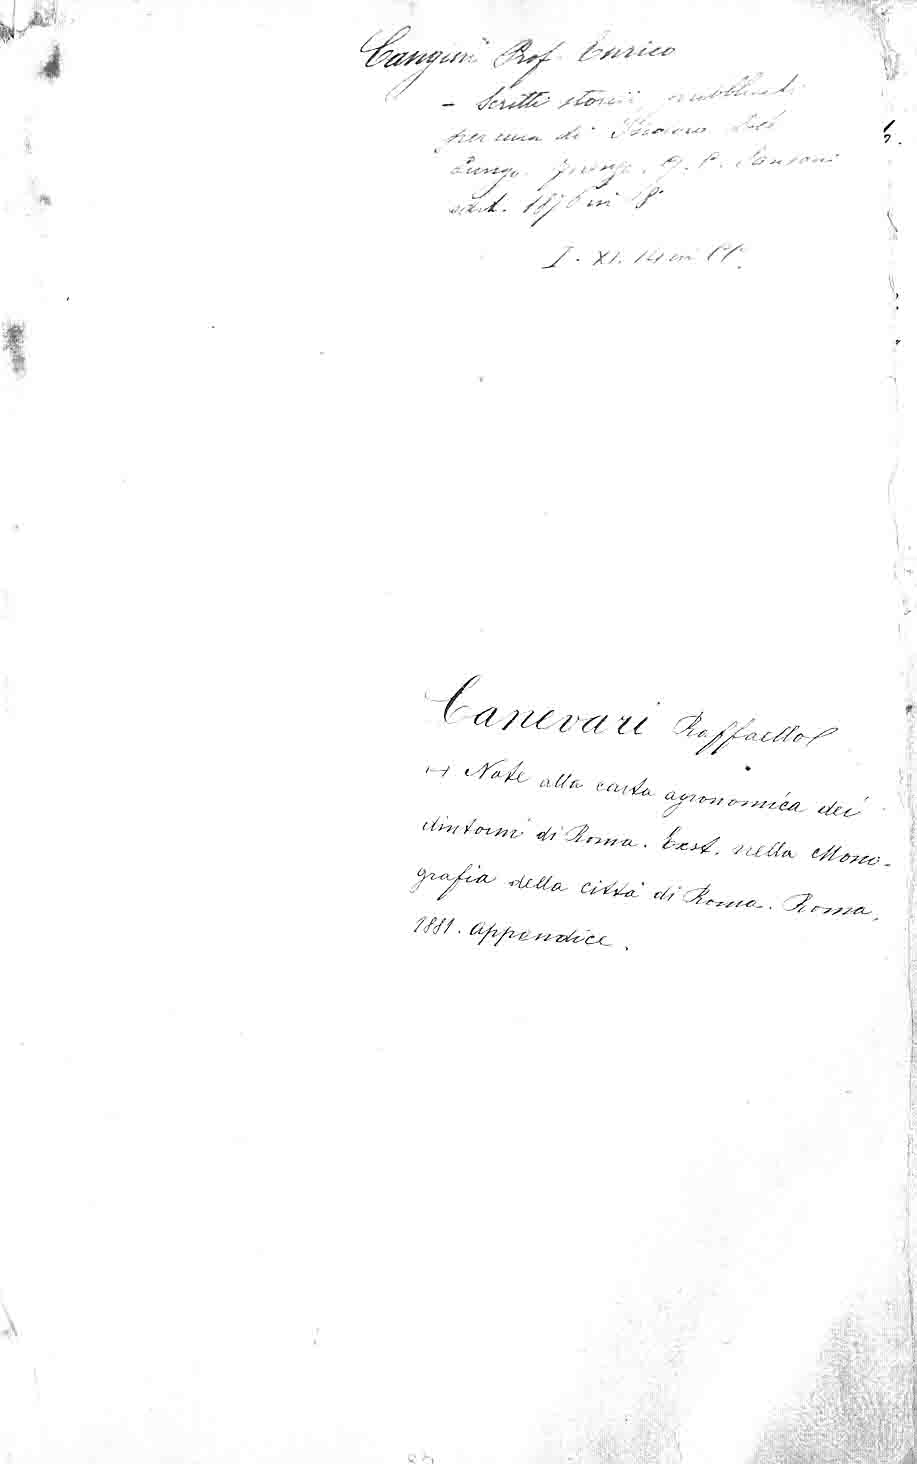 Cangini Prof. Enrico
- Scritti storici pubblicati
per cura di Isidoro Del
Lungo. Firenze. G. C. Sansoni
edit. 1876 in 8°
I. XI.
Canevari Raffaello
Note alla carta agronomica dei
dintorni di Roma. Est. nella Mono-
grafia della città di Roma. Roma,
1881. Appendice.